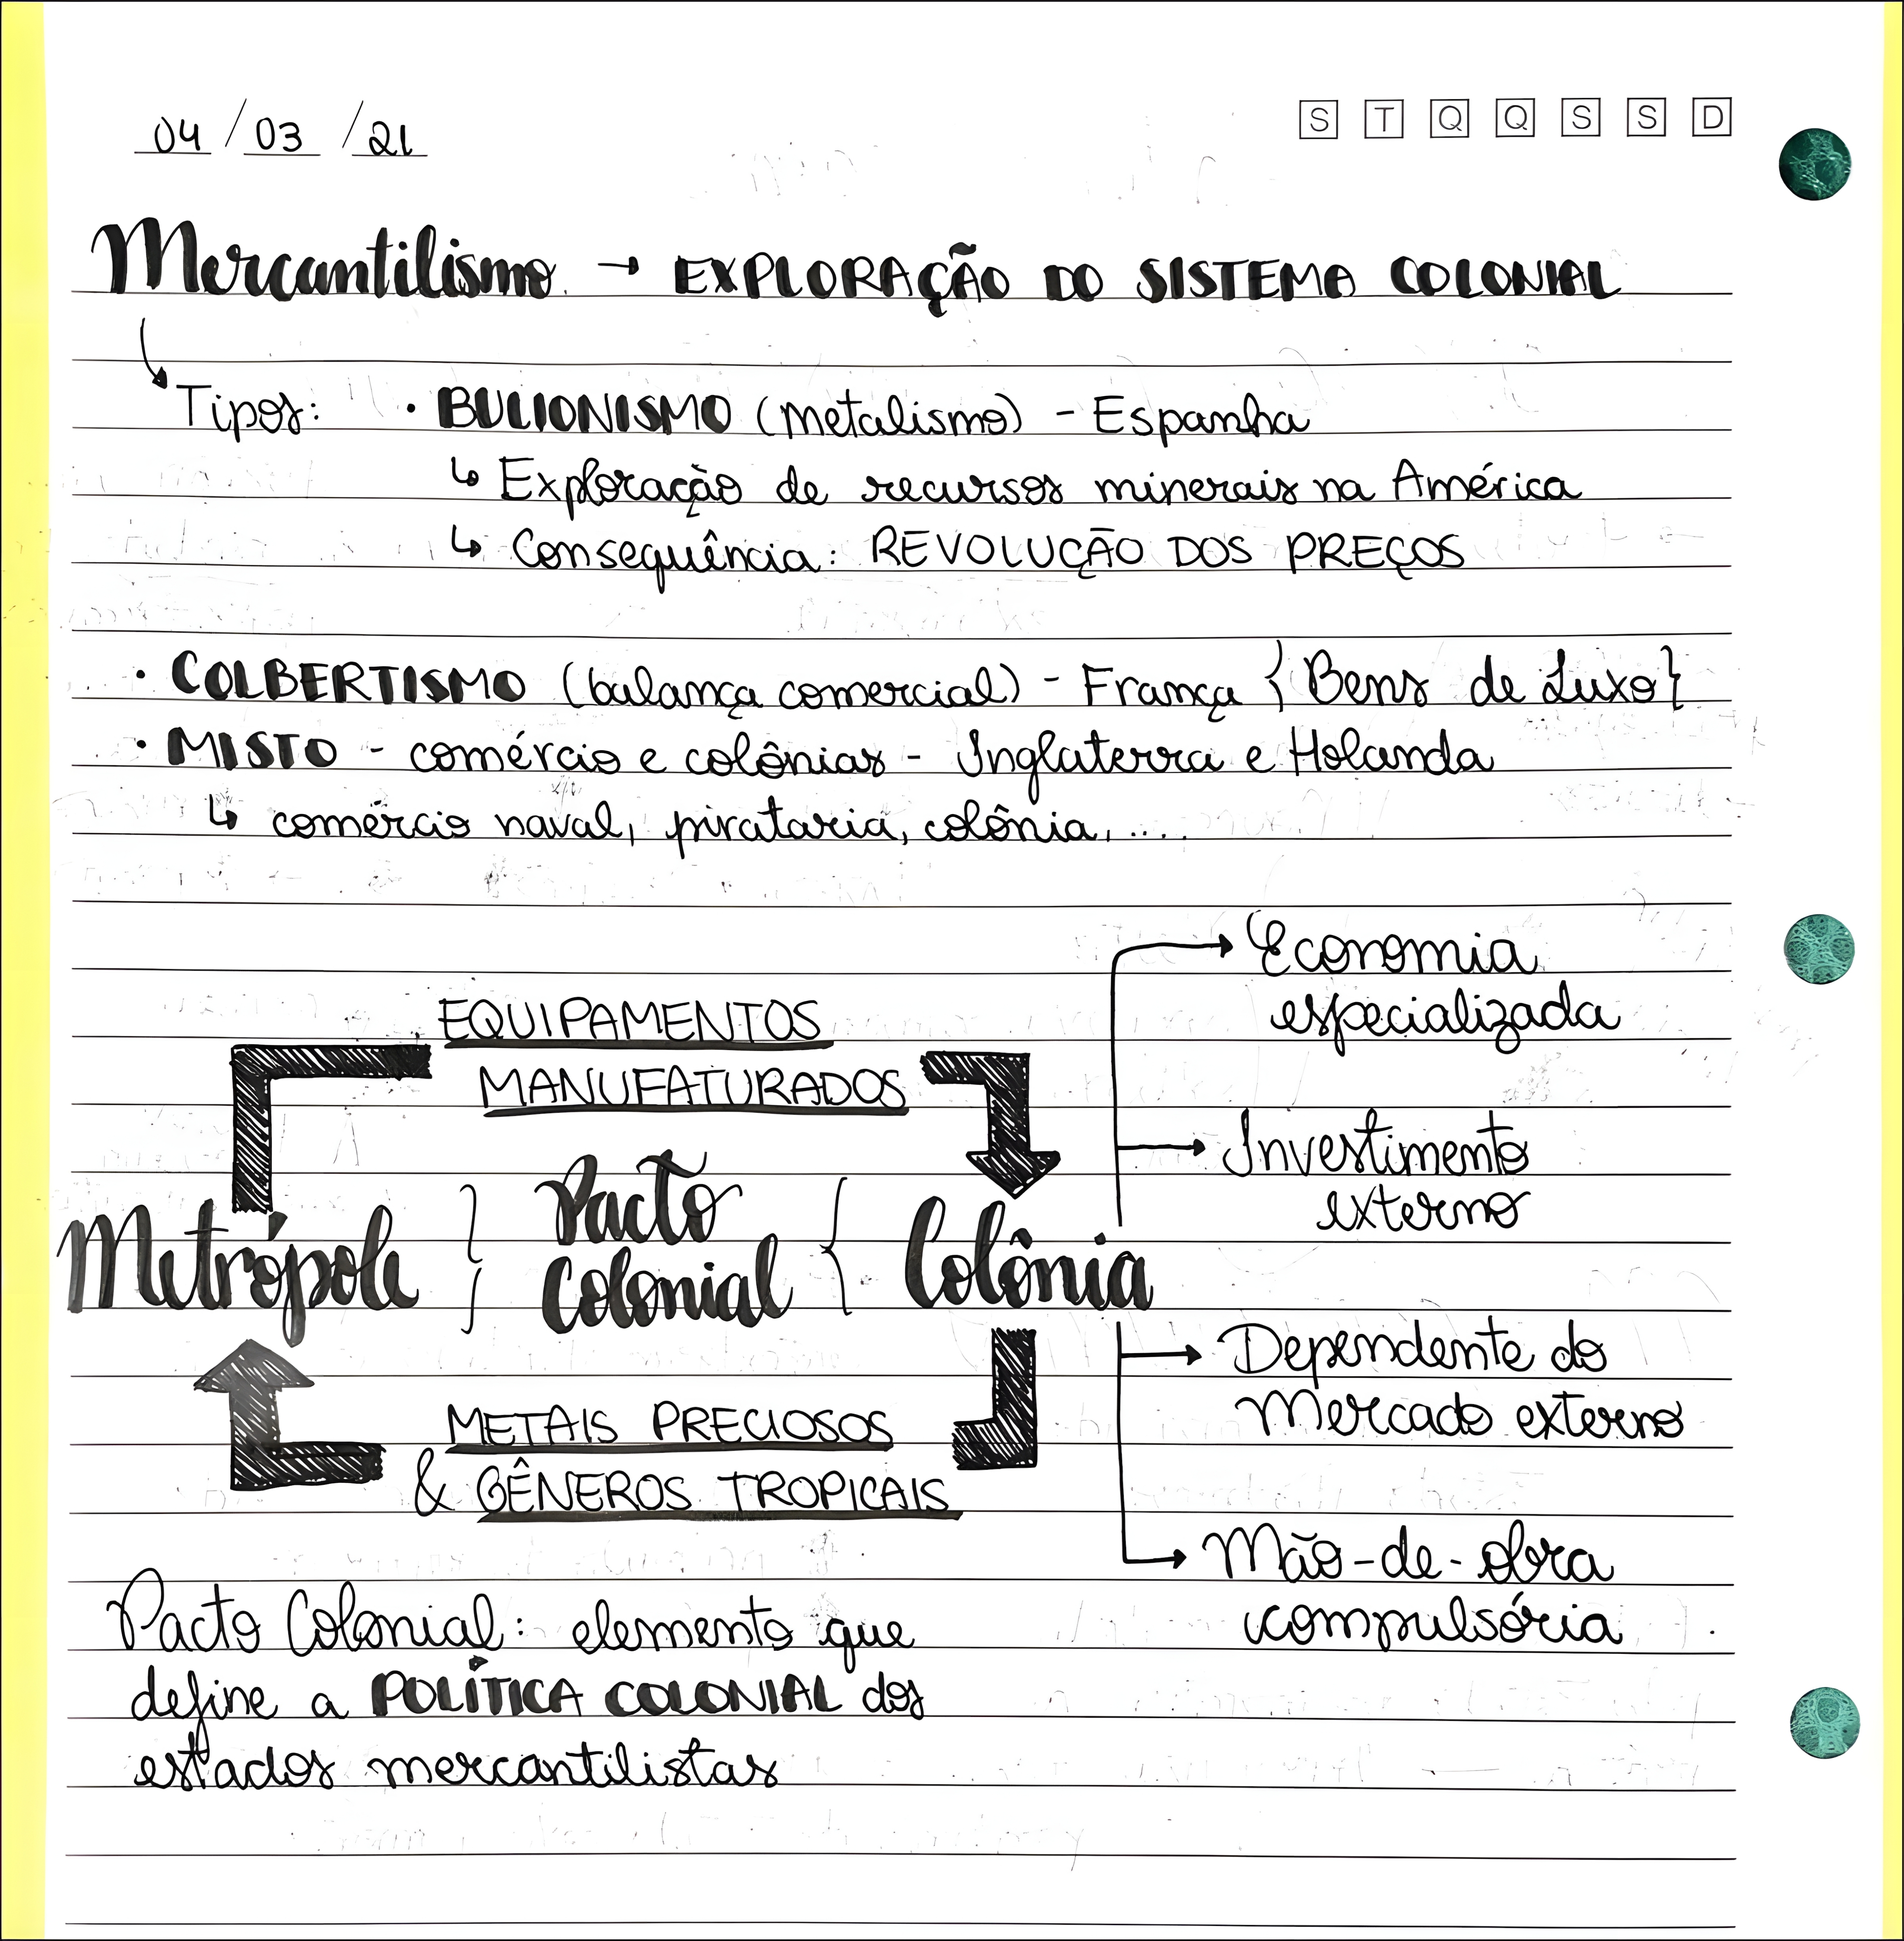 04/03/21
S T Q Q S S D
Mercantilismo → EXPLORAÇÃO DO SISTEMA COLONIAL
Tipos: • BULIONISMO (metalismo) - Espanha
↳ Exploração de recursos minerais na América
↳ Consequência: REVOLUÇÃO DOS PREÇOS
• COLBERTISMO (balança comercial) - França { Bens de Luxo }
• MISTO - comércio e colônias - Inglaterra e Holanda
↳ comércio naval, pirataria, colônia, ....
EQUIPAMENTOS
MANUFATURADOS
Metrópole } Pacto Colonial { Colônia
METAIS PRECIOSOS
& GÊNEROS TROPICAIS
Economia
especializada
Investimento
externo
Dependente do
Mercado externo
Mão-de-obra
compulsória
Pacto Colonial: elemento que
define a POLÍTICA COLONIAL dos
estados mercantilistas